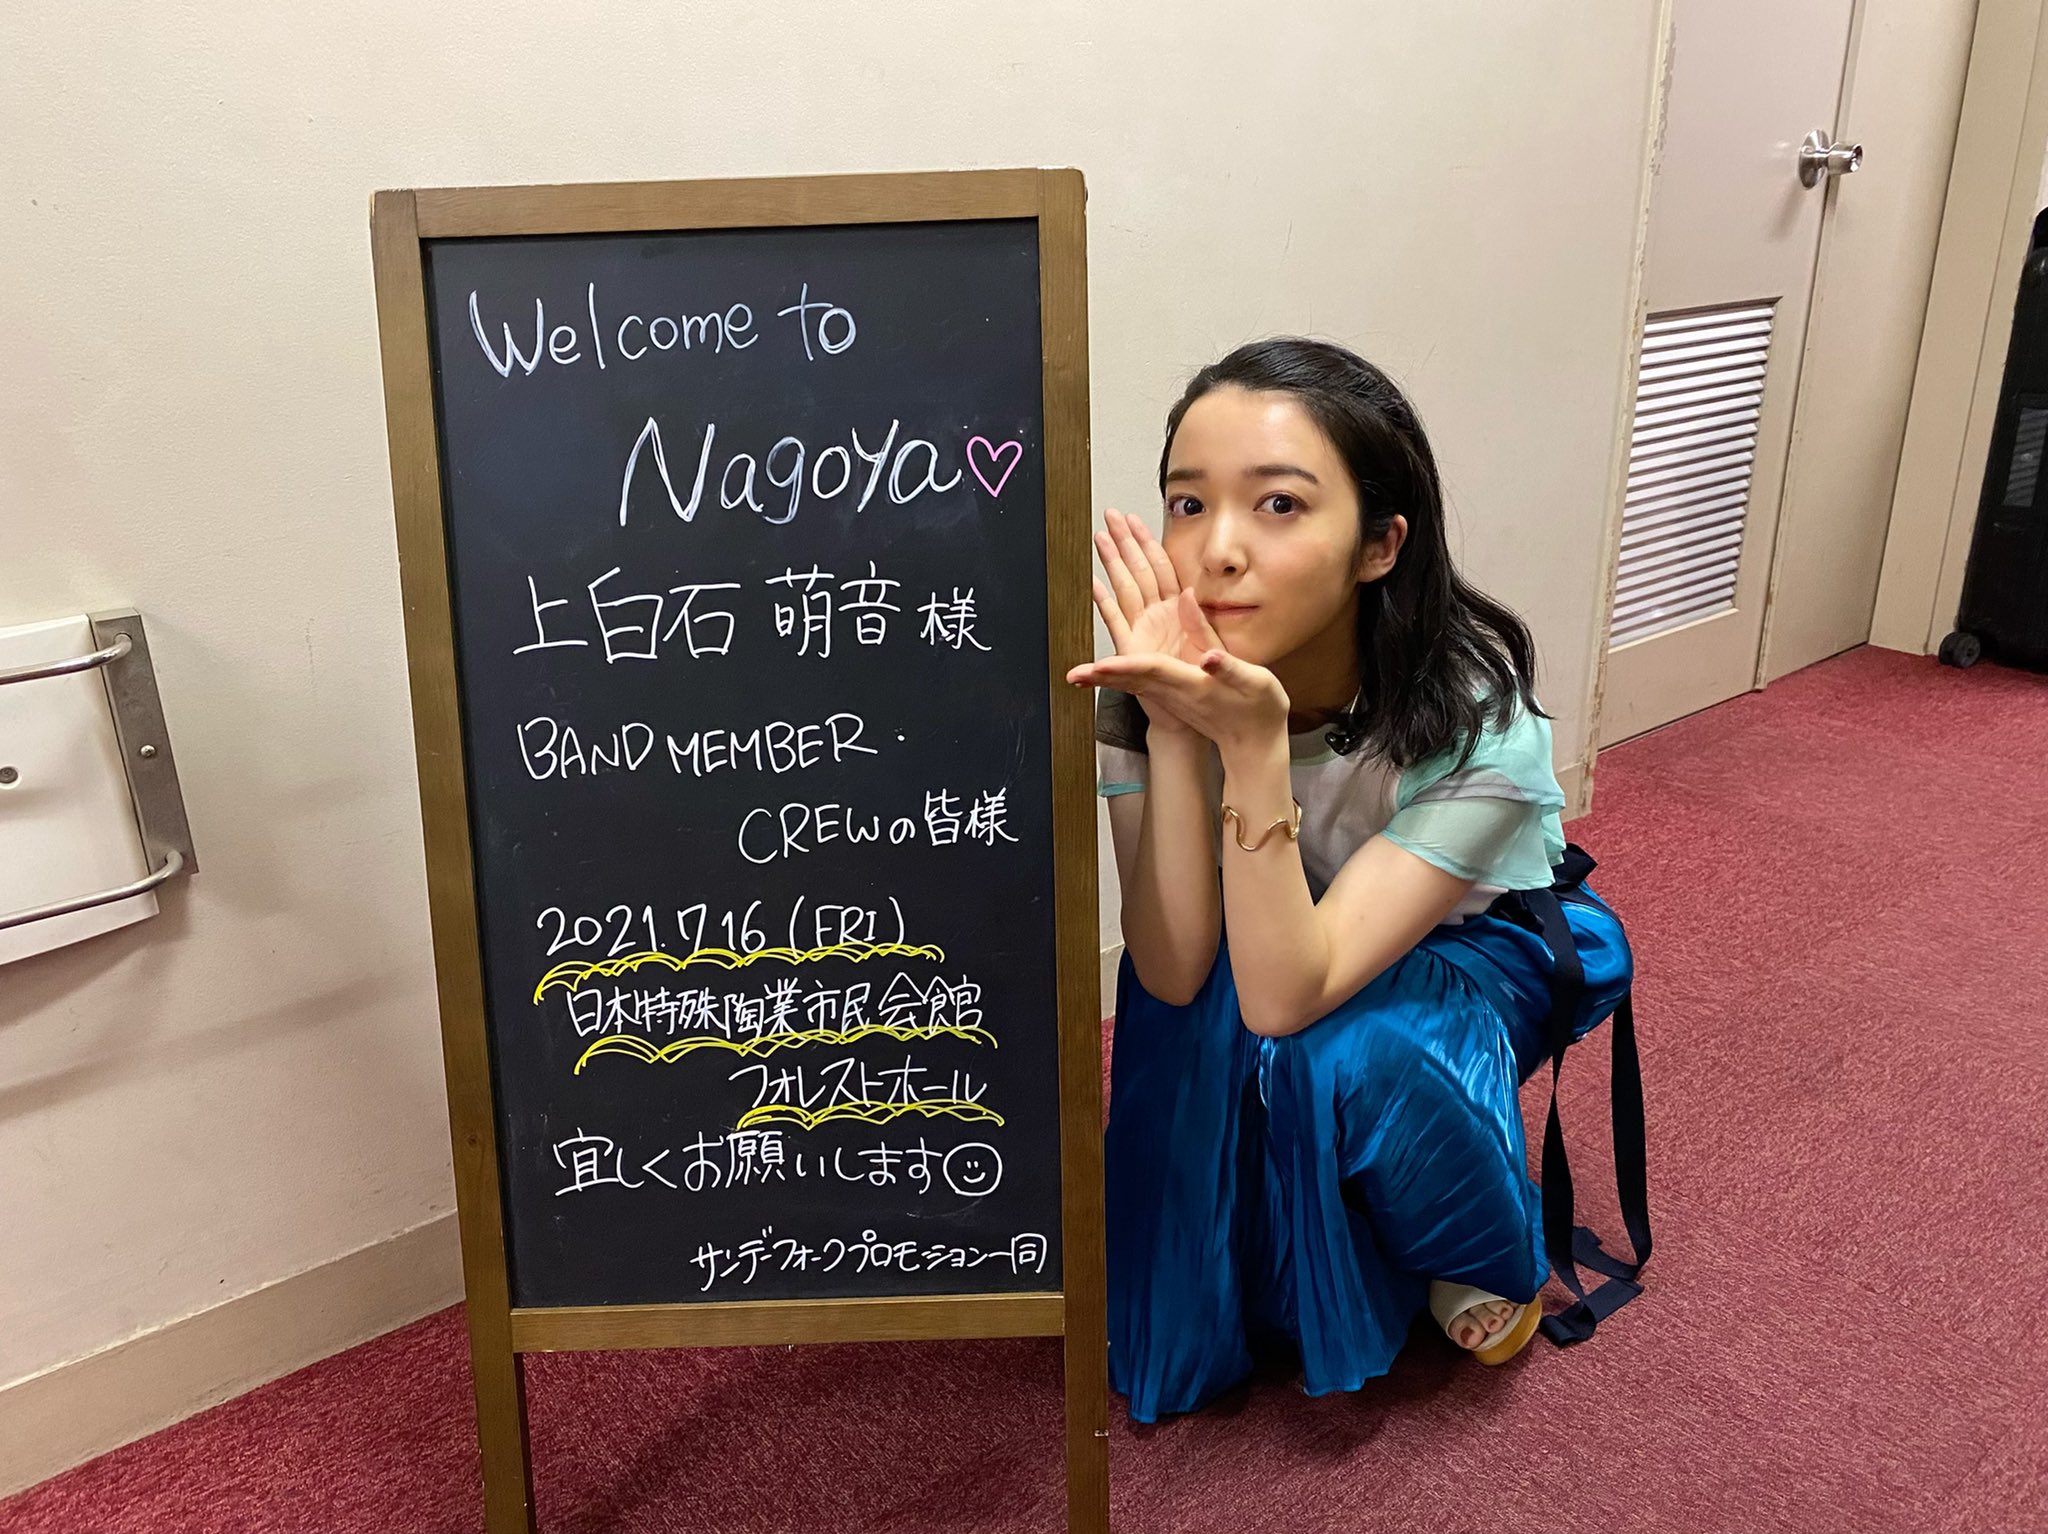 Welcome to
Nagoya♡
上白石 萌音 様
BAND MEMBER・
CREWの皆様
2021.7.16 (FRI)
日本特殊陶業市民会館
フォレストホール
宜しくお願いします☺
サンデーフォークプロモーション一同